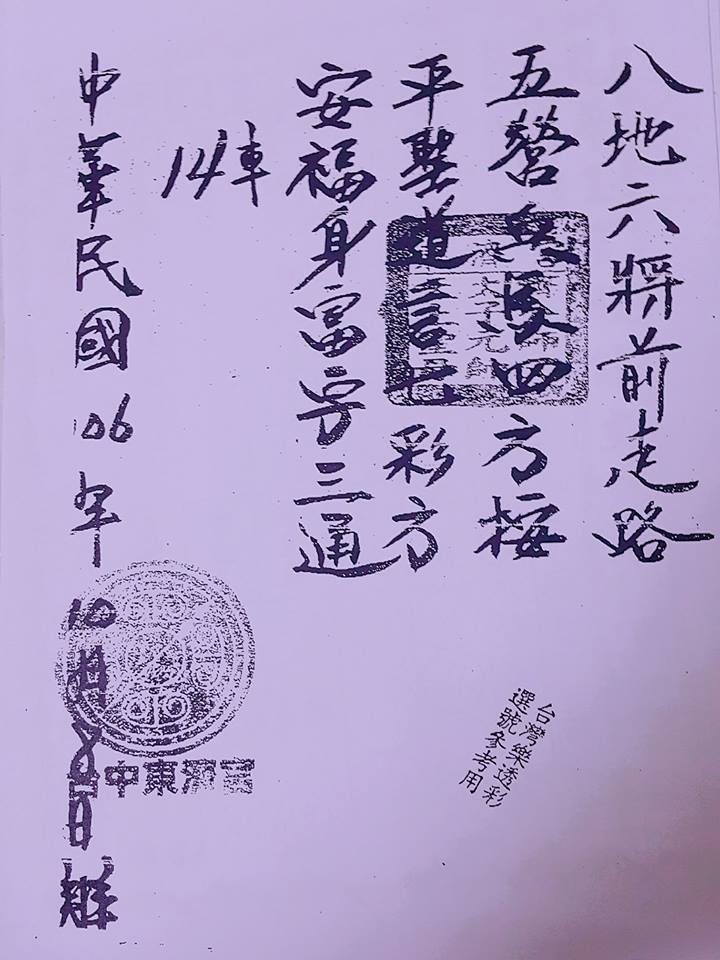 八地六將前走路
五營兵將四方按
平聖道言七彩方
安福身富字三通
14車
中華民國106年10月8日
台灣樂透彩
選號參考用